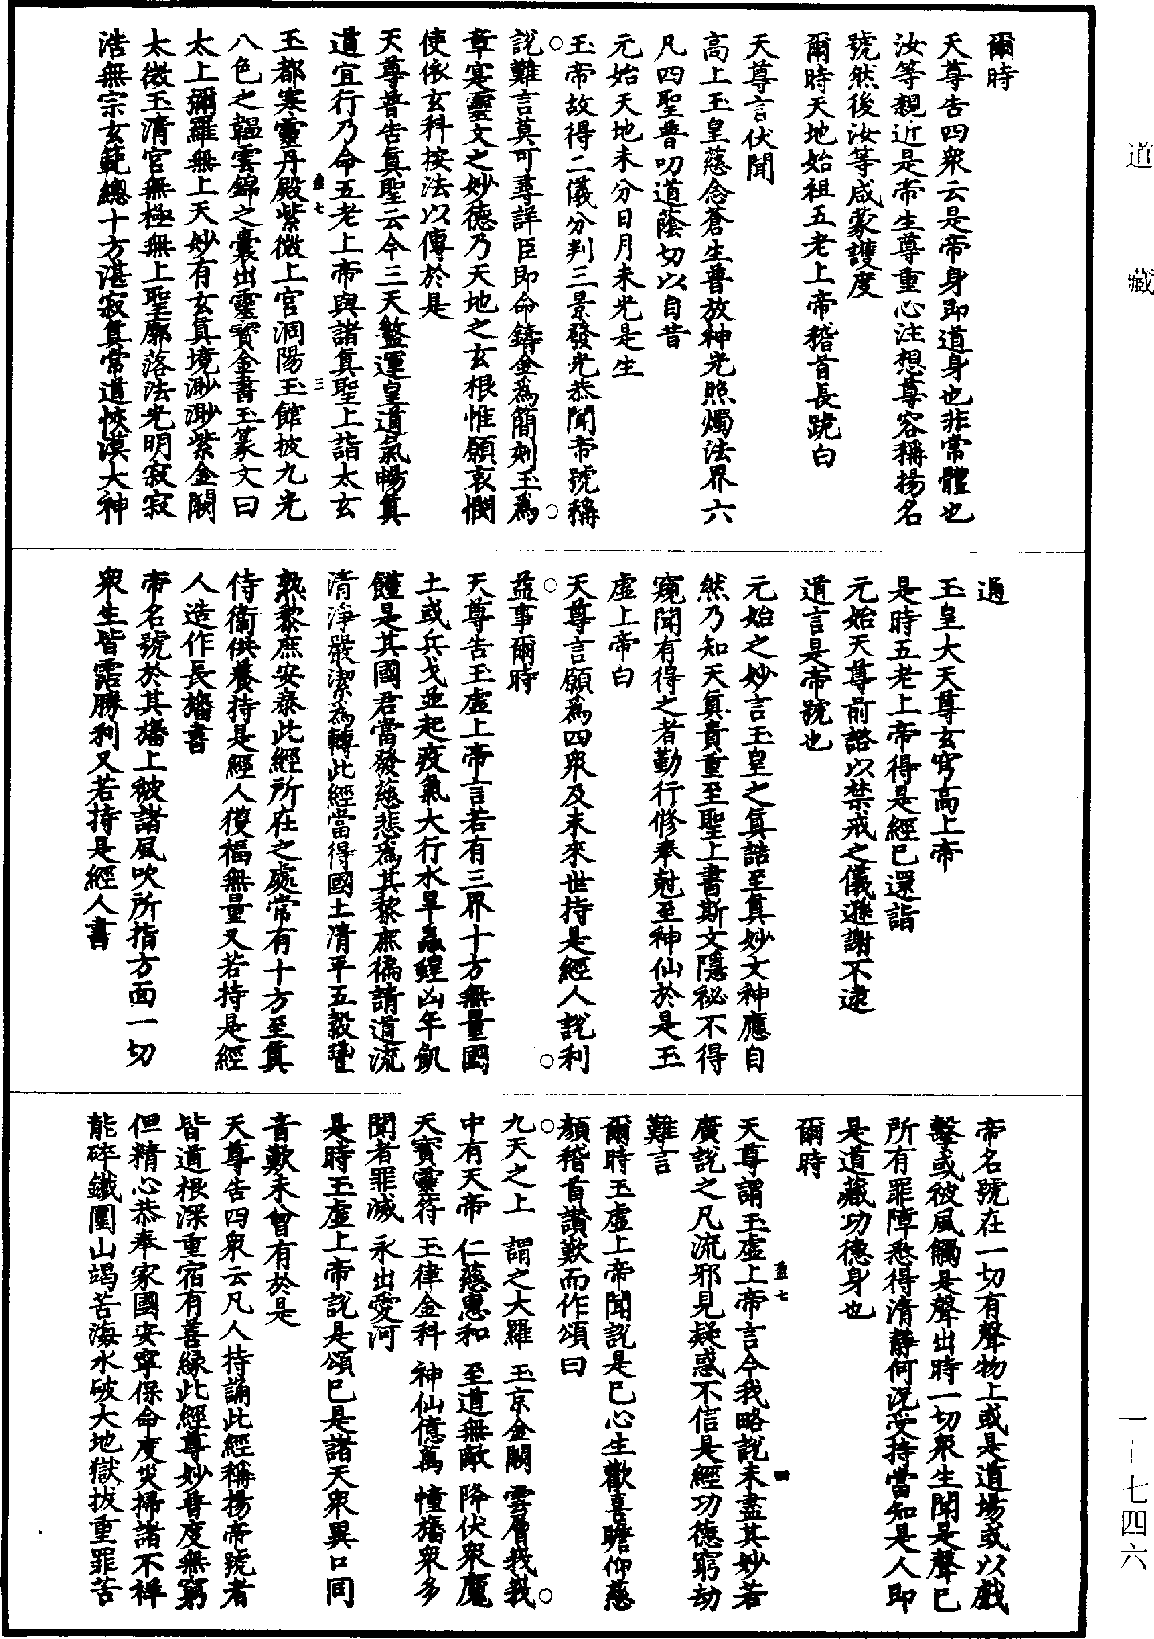 道藏
爾時
天尊告四衆云是帝身即道身也非常體也
汝等親近是帝生尊重心注想尊容稱揚名
號然後汝等咸蒙護度
爾時天地始祖五老上帝稽首長跪白
天尊言伏聞
高上玉皇慈念蒼生普放神光照燭法界六
凡四聖普叨道蔭切以自昔
元始天地未分日月未光是生
玉帝故得二儀分判三景發光恭聞帝號稱
說難言莫可尋詳臣即命鑄金爲簡刻玉爲
章寔靈文之妙德乃天地之玄根惟願哀憫
使依玄科按法以傳於是
天尊普告眞聖云今三天盤運皇道氣暢眞
道宜行乃命五老上帝與諸眞聖上詣太玄
盈七
三
玉都寒靈丹殿紫微上宮洞陽玉館披九光
八色之韞雲錦之囊出靈寳金書玉篆文曰
太上彌羅無上天妙有玄眞境渺渺紫金闕
太微玉清宮無極無上聖廓落法光明寂寂
浩無宗玄範總十方湛寂眞常道恢漠大神
通
玉皇大天尊玄穹高上帝
是時五老上帝得是經已還詣
元始天尊前諮以禁戒之儀遜謝不逮
道言是帝號也
元始之妙言玉皇之眞誥至眞妙文神應自
然乃知天眞貴重至聖上書斯文隱祕不得
窺聞有得之者勤行修奉尅至神仙於是玉
虛上帝白
天尊言願爲四衆及末來世持是經人說利
益事爾時
天尊告玉虛上帝言若有三界十方無量國
土或兵戈並起疫氣大行水旱蟲蝗凶年飢
饉是其國君當發慈悲爲其黎庶徧請道流
清淨嚴潔爲轉此經當得國土清平五穀豐
熟黎庶安泰此經所在之處常有十方至眞
侍衞供養持是經人獲福無量又若持是經
人造作長旛書
帝名號於其旛上被諸風吹所指方面一切
衆生皆霑勝利又若持是經人書
帝名號在一切有聲物上或是道場或以戲
擊或彼風觸是聲出時一切衆生聞是聲已
所有罪障悉得清靜何況受持當知是人即
是道藏功德身也
爾時
天尊謂玉虛上帝言今我略說未盡其妙若
盈七
四
廣說之凡流邪見疑惑不信是經功德窮劫
難言
爾時玉虛上帝聞說是已心生歡喜瞻仰慈
顏稽首讚歎而作頌曰
九天之上 謂之大羅 玉京金闕 雲層峩峩
中有天帝 仁慈惠和 至道無敵 降伏衆魔
天寳靈符 玉律金科 神仙億萬 幢旛衆多
聞者罪滅 永出愛河
是時玉虛上帝說是頌已是諸天衆異口同
音歎未曾有於是
天尊告四衆云凡人持誦此經稱揚帝號者
皆道根深重宿有善緣此經尊妙普度無窮
但精心恭奉家國安寧保命度災掃諸不祥
能碎鐵圍山竭苦海水破大地獄拔重罪苦
一—七四六